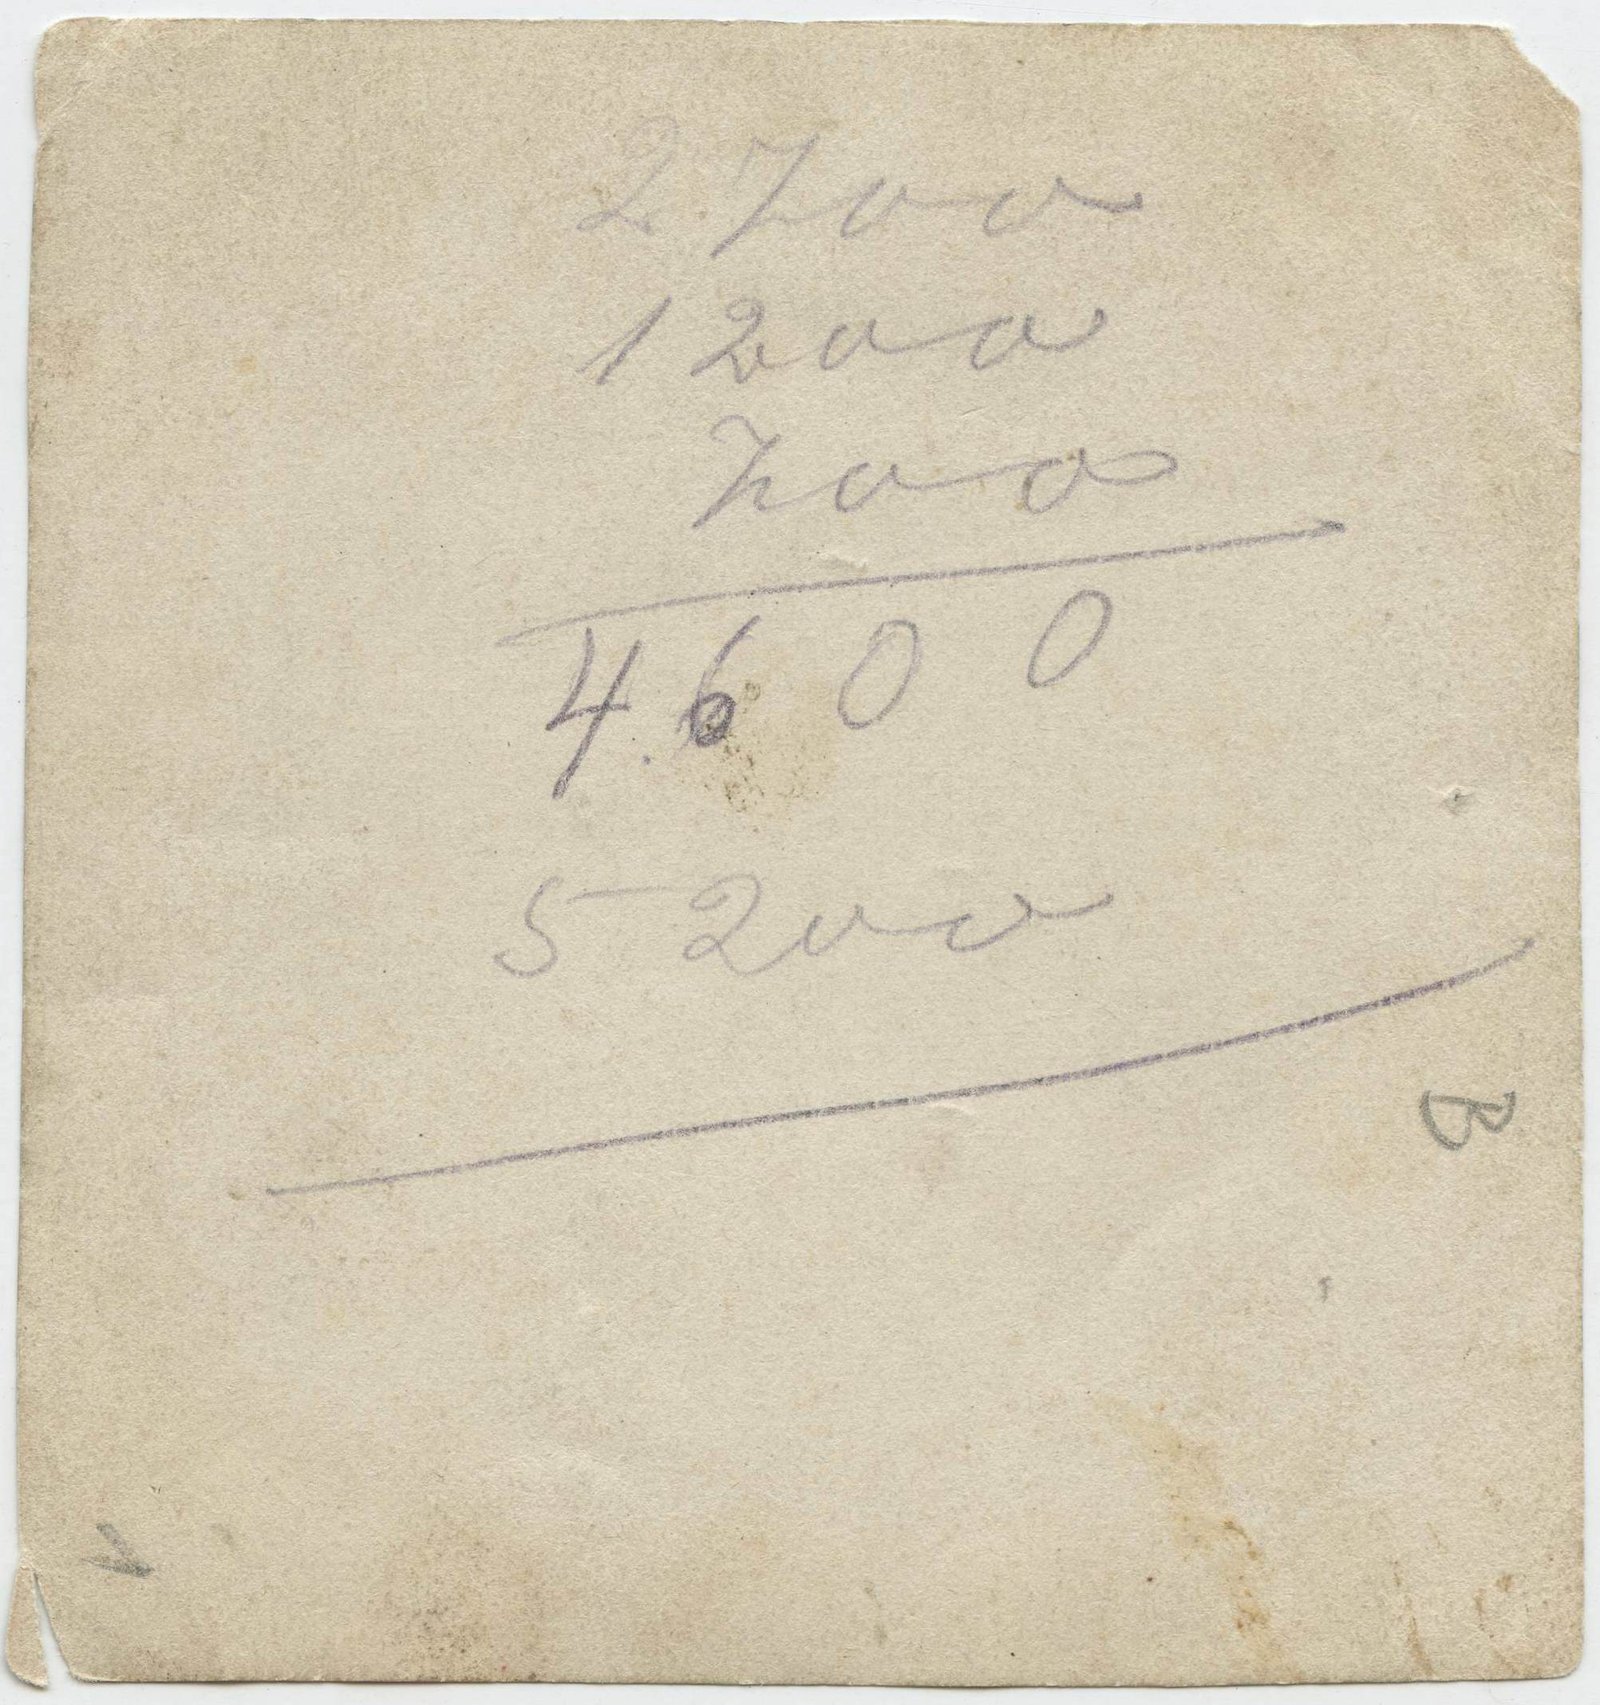 2700
1200
700
4.600
5200
B